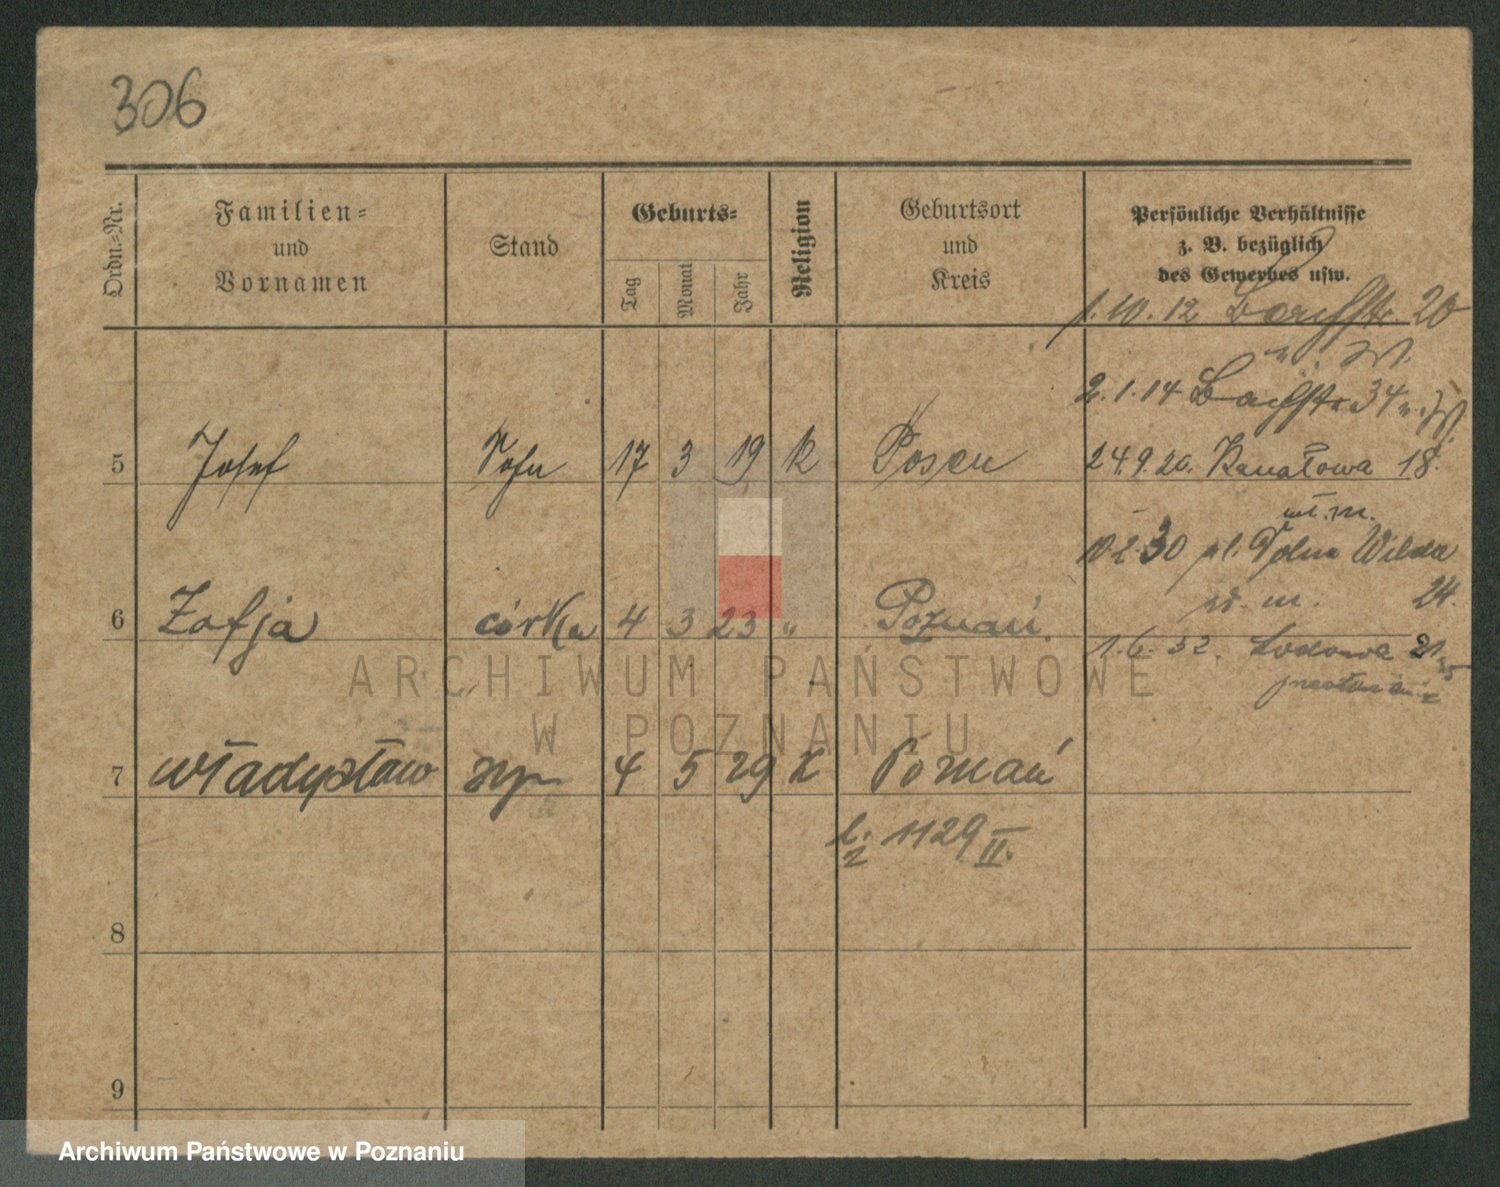 306
Ordn.-Nr.
Familien-
und
Vornamen
Stand
Geburts-
Tag
Monat
Jahr
Religion
Geburtsort
und
Kreis
Persönliche Verhältnisse
z. B. bezüglich
des Gewerbes usw.
1.10.12 20
2.1.14 Bachstr. 34
5 Josef Sohn 17 3 19 k Posen 24.9.20. Kanałowa 18.
10.2.30 Wilda
24.
6 Zofja córka 4 3 23 " Poznań. 1.6.32. 21
ARCHIWUM PAŃSTWOWE
W POZNANIU
7 Władysław syn 4 5 29 K Poznań
1129 II.
8
9
Archiwum Państwowe w Poznaniu